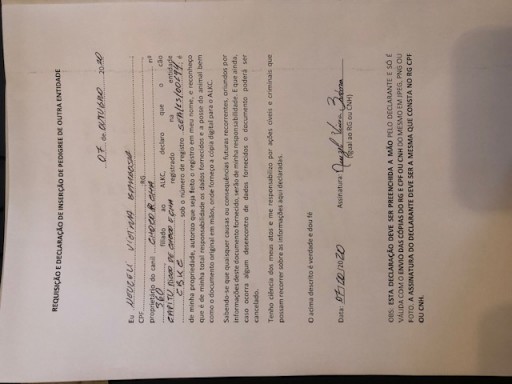 REQUISIÇÃO E DECLARAÇÃO DE INSERÇÃO DE PEDIGREE DE OUTRA ENTIDADE
07 de OUTUBRO 2020
Eu
CPF RG nº
proprietário do canil
360 filiado ao ALKC, declaro que o cão
registrado na entidade
CBKC sob o número de registro e
de minha propriedade, autorizo que seja feito o registro em meu nome, e reconheço
que é de minha total responsabilidade os dados fornecidos e a posse do animal bem
como o documento original em mãos, onde forneço a cópia digital para o ALKC.
Sabendo-se que quaisquer causas ou consequências futuras recorrentes, oriundos por
informações deste documento fornecido, serão de minha responsabilidade. E que ainda,
caso ocorra algum desencontro de dados fornecidos o documento poderá ser
cancelado.
Tenho ciência dos meus atos e me responsabilizo por ações cíveis e criminais que
possam recorrer sobre as informações aqui declaradas.
O acima descrito é verdade e dou fé
Data: Assinatura:
(Igual ao RG ou CNH)
OBS: ESTA DECLARAÇÃO DEVE SER PREENCHIDA A MÃO PELO DECLARANTE E SÓ É
VÁLIDA COM O ENVIO DAS CÓPIAS DO RG E CPF OU CNH DO MESMO EM JPEG, PNG OU
FOTO. A ASSINATURA DO DECLARANTE DEVE SER A MESMA QUE CONSTA NO RG CPF
OU CNH.